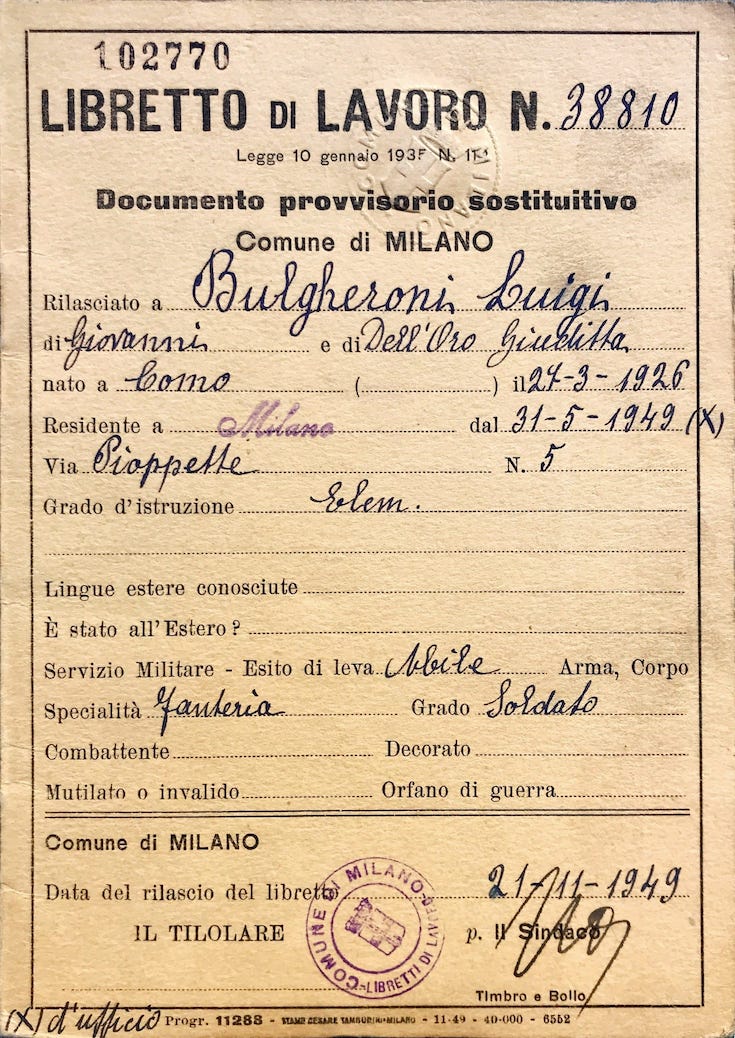 102770
LIBRETTO DI LAVORO N. 38810
Legge 10 gennaio 1935 N. 112
Documento provvisorio sostituitivo
Comune di MILANO
Rilasciato a Bulgheroni Luigi
di Giovanni e di Dell'Oro Giuditta
nato a Como ( ) il 27-3-1926
Residente a Milano dal 31-5-1949 (X)
Via Pioppette N. 5
Grado d'istruzione Elem.
Lingue estere conosciute
È stato all'Estero?
Servizio Militare - Esito di leva Abile Arma, Corpo
Specialità Fanteria Grado Soldato
Combattente Decorato
Mutilato o invalido Orfano di guerra
Comune di MILANO
Data del rilascio del libretto 21-11-1949
COMUNE DI MILANO
LIBRETTI DI LAVORO
IL TILOLARE p. Il Sindaco
Timbro e Bollo
(X) d'ufficio Progr. 11288 - STAMP. CESARE TAMBORINI-MILANO - 11-49 - 40-000 - 6552